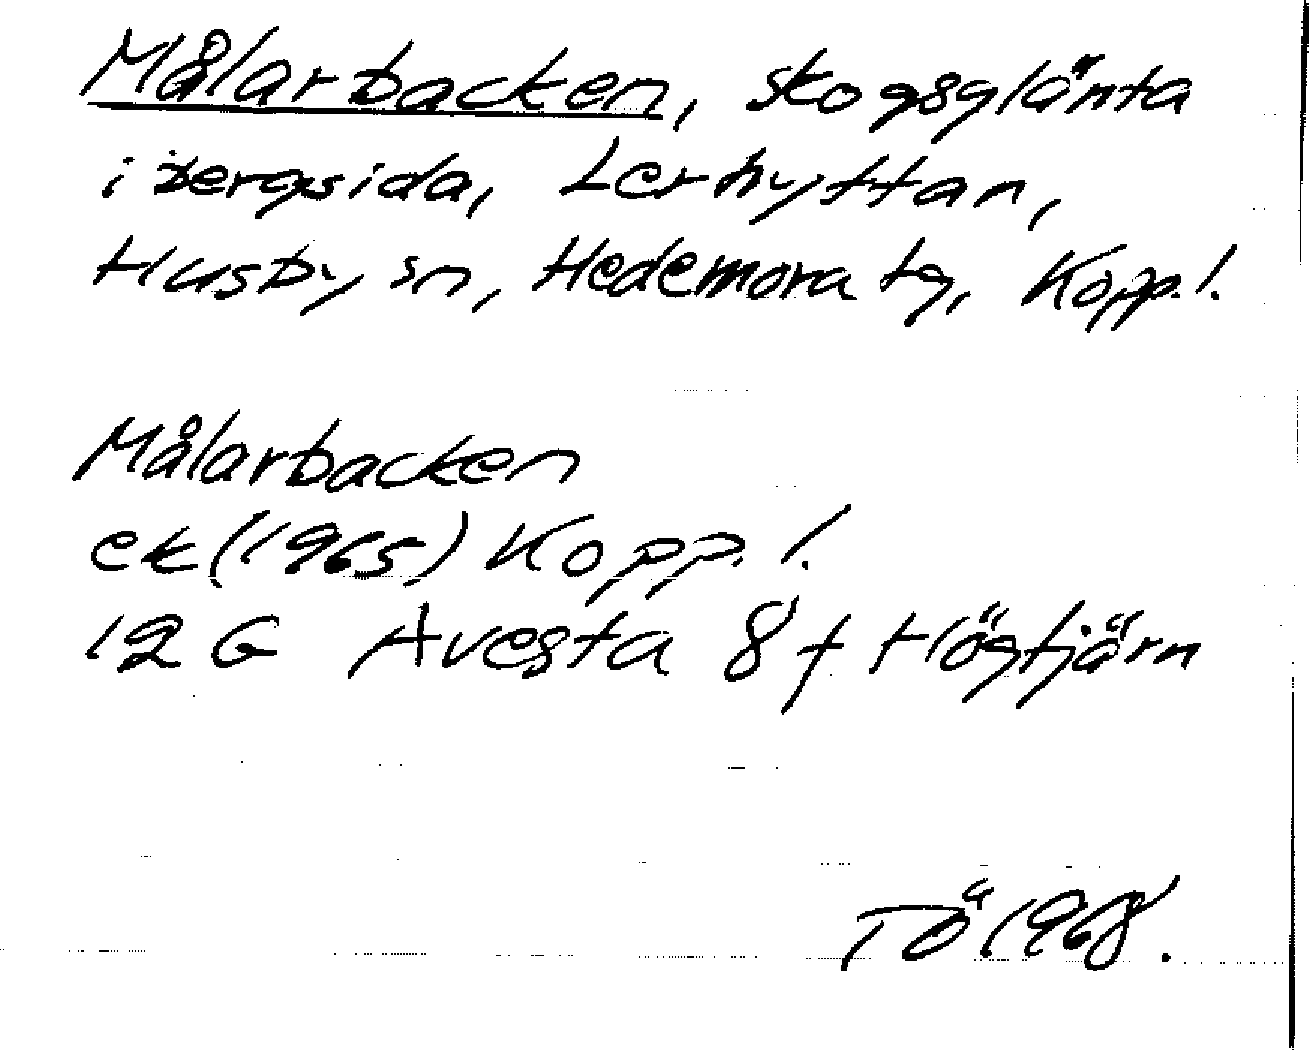 Målarbacken, skogsglänta
i bergsida, Lerhyttan,
Husby sn, Hedemora tg, Kopp.l.
Målarbacken
ek (1965) Kopp. l.
12 G Avesta 8 f Högtjärn
TÖ 1968.